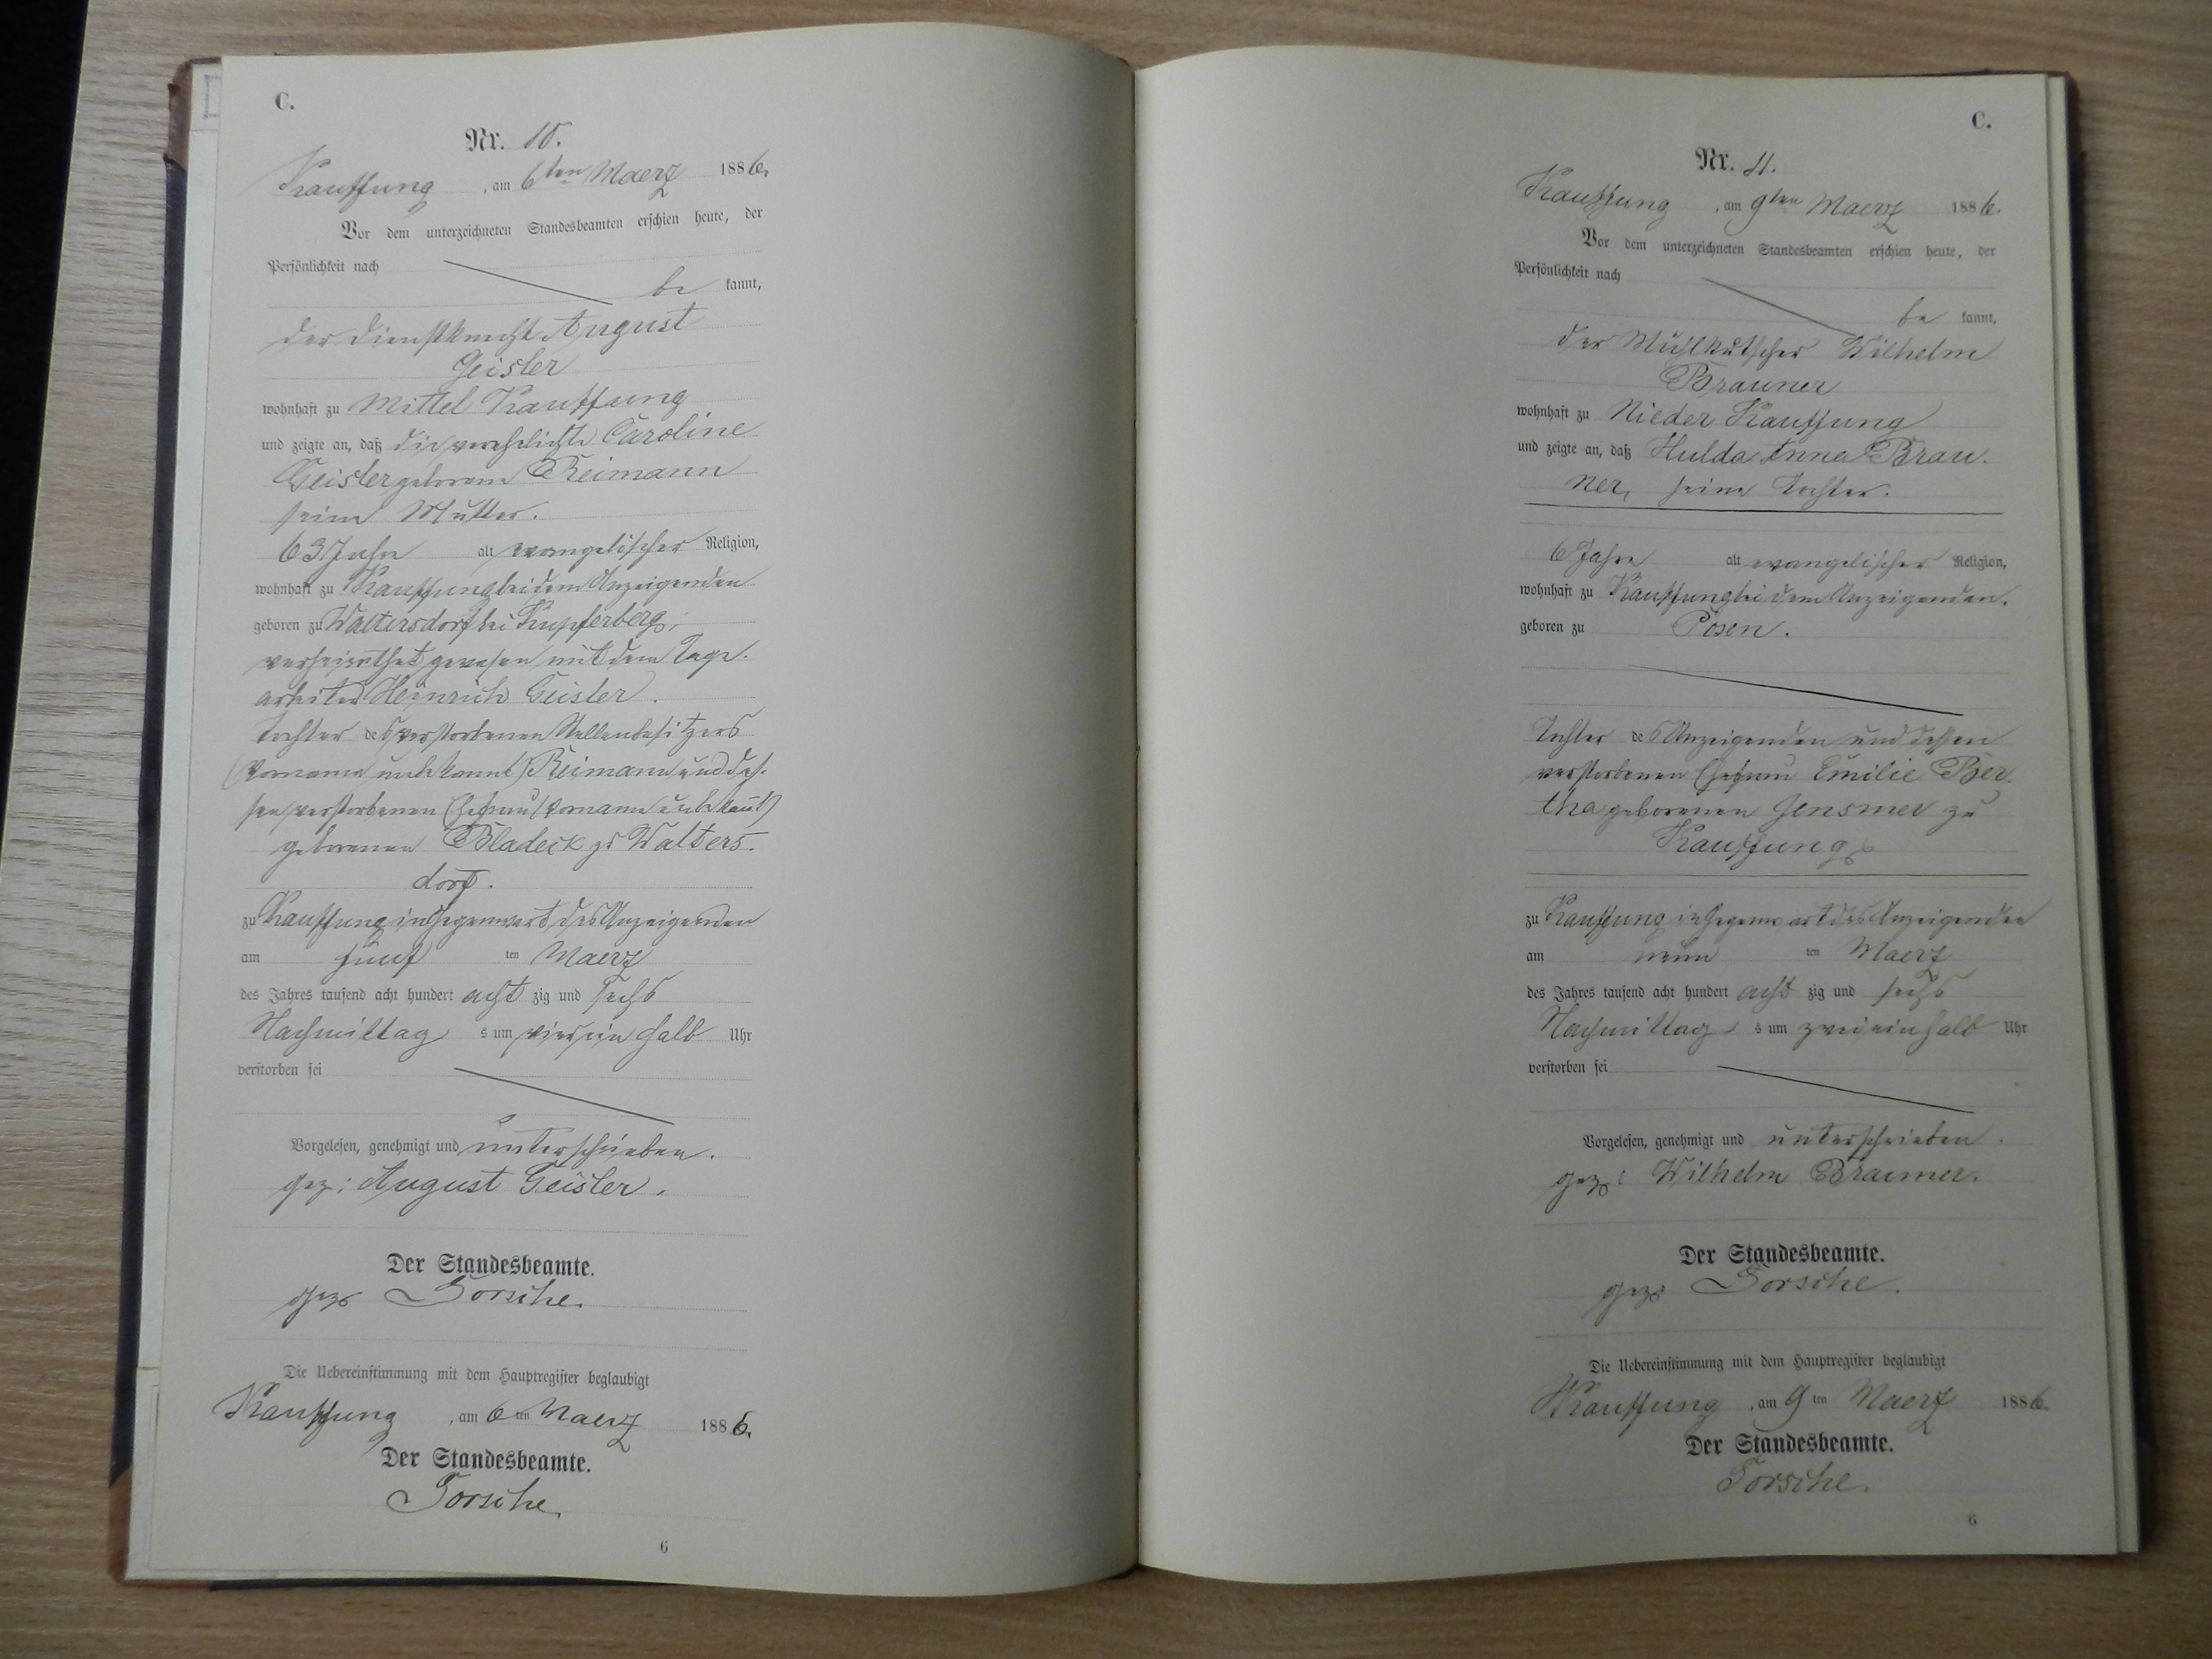 C.
Nr. 10.
Kauffung, am 6ten Maerz 1886.
Vor dem unterzeichneten Standesbeamten erschien heute, der
Persönlichkeit nach
be kannt,
der Dienstknecht August
Geisler
wohnhaft zu Mittel Kauffung
und zeigte an, daß die verehelichte Caroline
Geisler geborene Reimann
seine Mutter.
63 Jahr alt evangelischer Religion,
wohnhaft zu Kauffung bei dem Anzeigenden
geboren zu Waltersdorf bei Kupferberg,
verheirathet gewesen mit dem Tage-
arbeiter Heinrich Geisler.
Tochter des verstorbenen Stellenbesitzers
(Vorname unbekannt) Reimann und des-
sen verstorbenen Ehefrau (Vorname unbekannt)
geborenen Bladeck zu Walters-
dorf.
zu Kauffung in Gegenwart des Anzeigenden
am fünf ten Maerz
des Jahres tausend acht hundert acht zig und sechs
Nachmittag s um vier ein halb Uhr
verstorben sei
Vorgelesen, genehmigt und unterschrieben.
gez: August Geisler.
Der Standesbeamte.
gez. Torsche.
Die Uebereinstimmung mit dem Hauptregister beglaubigt
Kauffung, am 6 ten Maerz 1886.
Der Standesbeamte.
Torsche.
6
C.
Nr. 11.
Kauffung, am 9ten Maerz 1886.
Vor dem unterzeichneten Standesbeamten erschien heute, der
Persönlichkeit nach
be kannt,
der Mühlkutscher Wilhelm
Brauner
wohnhaft zu Nieder Kauffung
und zeigte an, daß Hulda Anna Brau-
ner, seine Tochter.
6 Jahre alt evangelischer Religion,
wohnhaft zu Kauffung bei dem Anzeigenden.
geboren zu Posen.
Tochter des Anzeigenden und dessen
verstorbenen Ehefrau Emilie Ber-
tha geborenen Jensmer zu
Kauffung.
zu Kauffung in Gegenwart des Anzeigenden
am neun ten Maerz
des Jahres tausend acht hundert acht zig und sechs
Nachmittag s um zwei ein halb Uhr
verstorben sei
Vorgelesen, genehmigt und unterschrieben.
gez: Wilhelm Brauner.
Der Standesbeamte.
gez. Torsche.
Die Uebereinstimmung mit dem Hauptregister beglaubigt
Kauffung, am 9 ten Maerz 1886.
Der Standesbeamte.
Torsche.
6